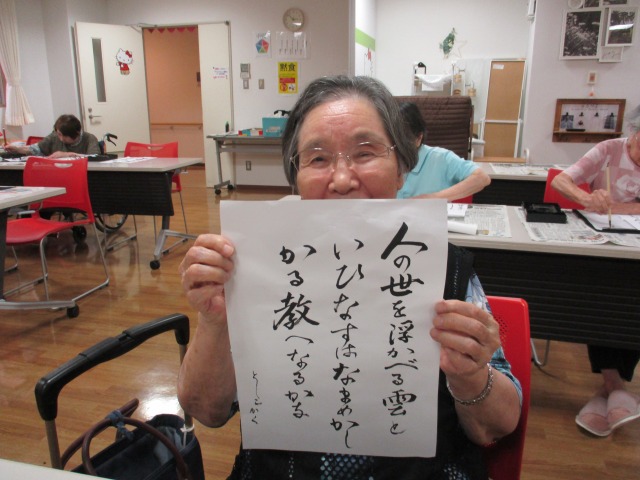 人の世を浮かべる雲と
いひなすはなまめかし
かる教へなるかな
としこかく
黙食